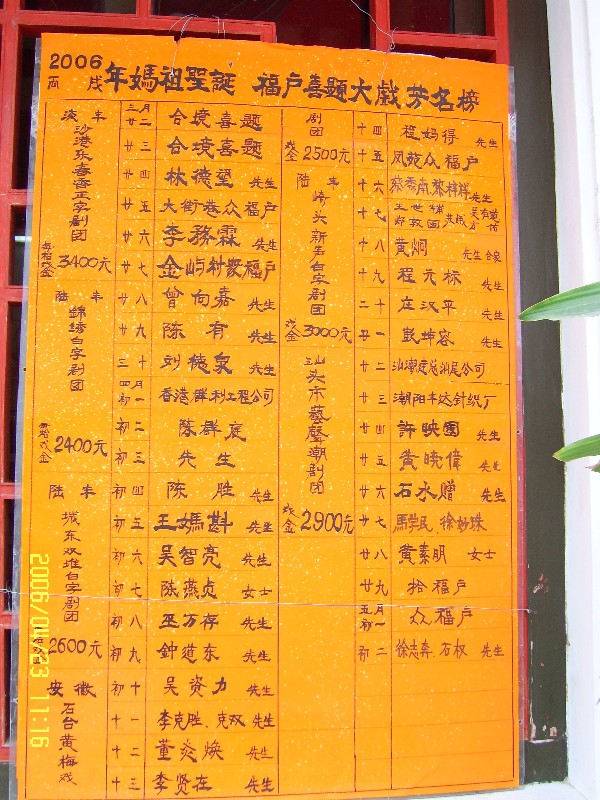 2006
丙戌年媽祖聖誕 福户喜題大戲芳名榜
陸丰
沙港东喜香正字剧团
每枱戏金3400元
三月廿二 合境喜题
廿三 合境喜题
廿四 林德望 先生
廿五 大街巷众福户
廿六 李務霖 先生
廿七 金屿村眾福户
陆丰
錦綉白字剧团
每枱戏金2400元
廿八 曾向嘉 先生
廿九 陈有 先生
三十 刘德泉 先生
四月初一 香港群利工程公司
初二 陈群庭
初三 先生
陆丰
城东双堆白字剧团
2600元
初四 陈胜 先生
初五 王媽斟 先生
初六 吴智亮 先生
初七 陈燕贞 女士
初八 巫万存 先生
初九 鈡道东 先生
安徽
石台黄梅戏
剧团
戏金2500元
初十 吴资力 先生
十一 李克胜 克双 先生
十二 董炎焕 先生
十三 李贤在 先生
十四 程妈得 先生
十五 凤苑众福户
陆丰
崎头新声白字剧团
戏金3000元
十六 蔡秀南 蔡梓梓 先生
十七
十八 黄炯 先生合家
十九 程元标 先生
二十 庄汉平 先生
廿一 彭坤容 先生
汕头市藝聲潮剧团
戏金2900元
廿二 汕潮庭总汕尾公司
廿三 潮阳丰达针织厂
廿四 許映国 先生
廿五 黄晓偉 先生
廿六 石永赠 先生
廿七 馬学民 徐妙珠
廿八 黄素明 女士
廿九 拾福户
五月初一 众福户
初二 徐志奔 石权 先生
11:16